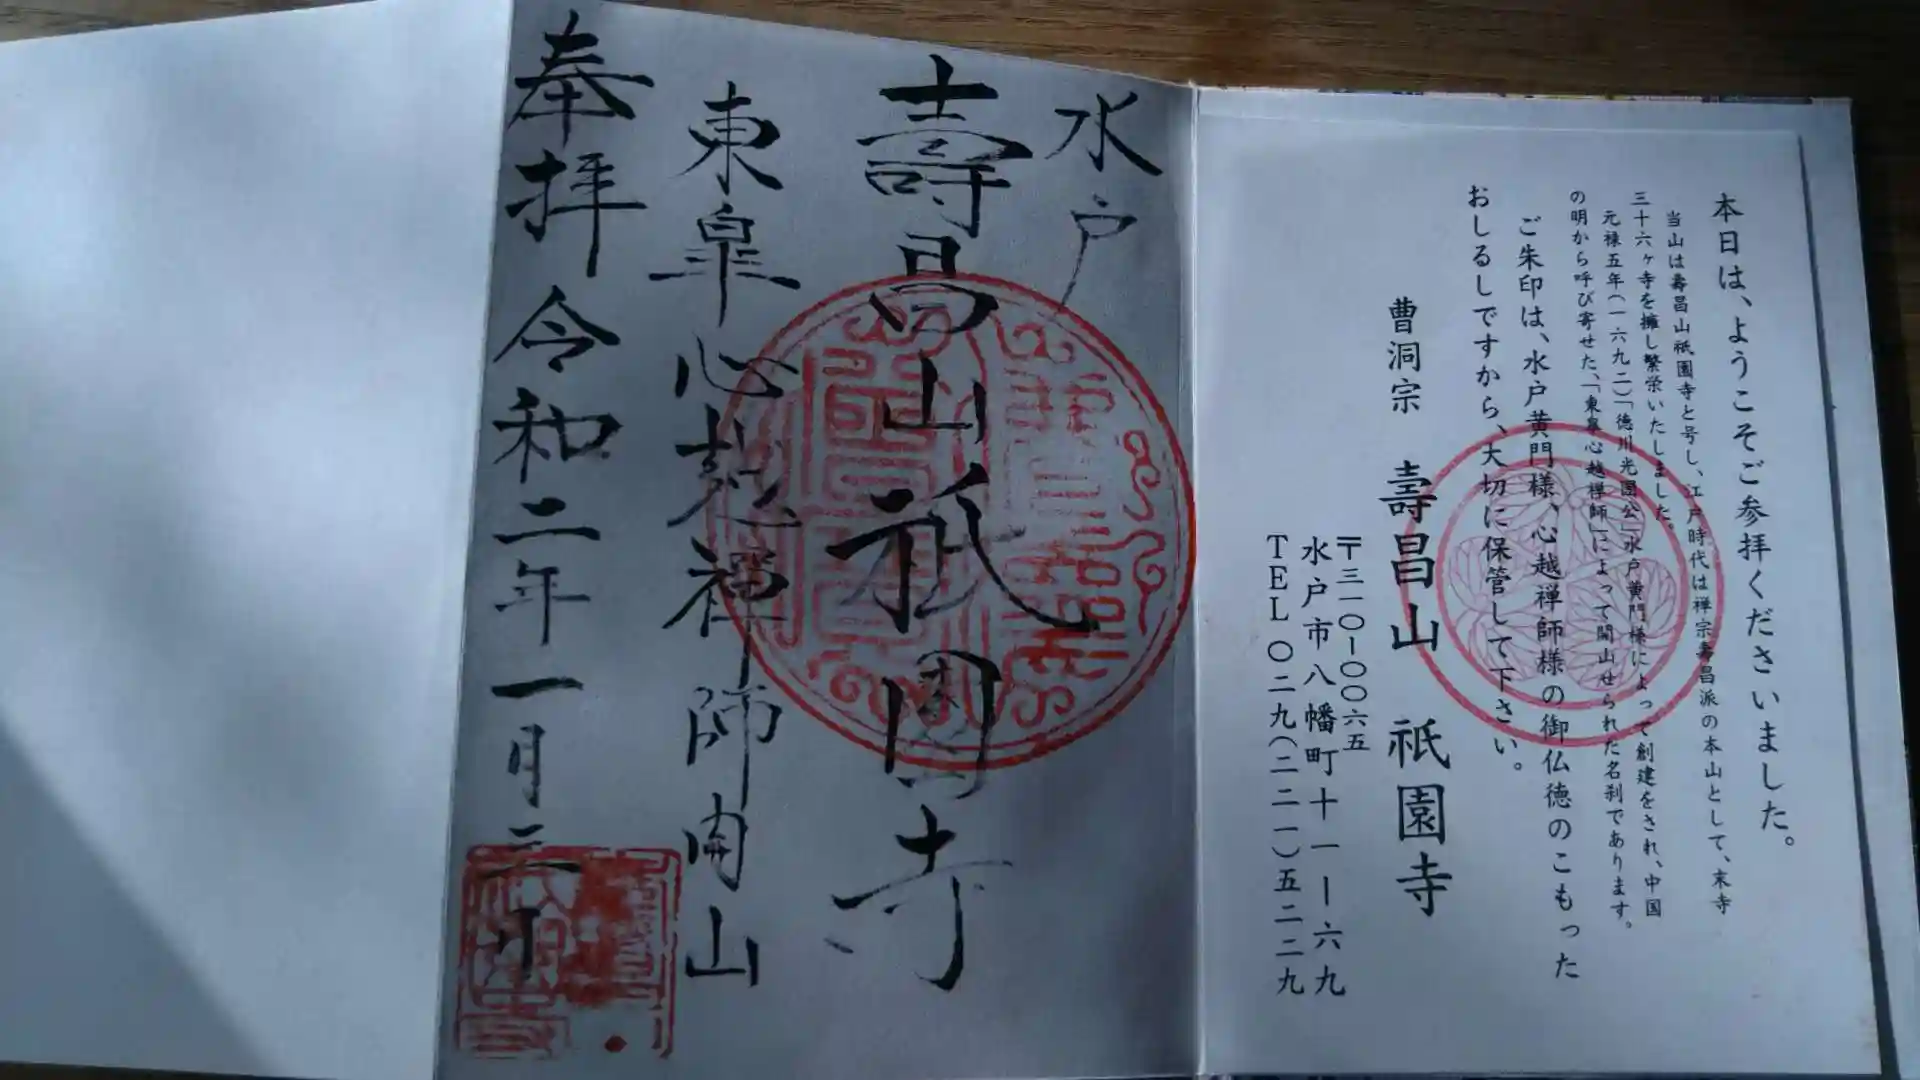 本日は、ようこそご参拝くださいました。
当山は壽昌山祇園寺と号し、江戸時代は禅宗壽昌派の本山として、末寺
三十六ヶ寺を擁し繁栄いたしました。
元禄五年(一六九二)「徳川光圀公」水戸黄門様によって創建をされ、中国
の明から呼び寄せた、「東皐心越禅師」によって開山せられた名刹であります。
ご朱印は、水戸黄門様、心越禅師様の御仏徳のこもった
おしるしですから、大切に保管して下さい。
曹洞宗 壽昌山 祇園寺
〒三一〇-〇〇六五
水戸市八幡町十一ー六九
TEL〇二九(二二一)五二二九
水戸
壽昌山祇園寺
東皐心越禅師開山
奉拝 令和二年一月